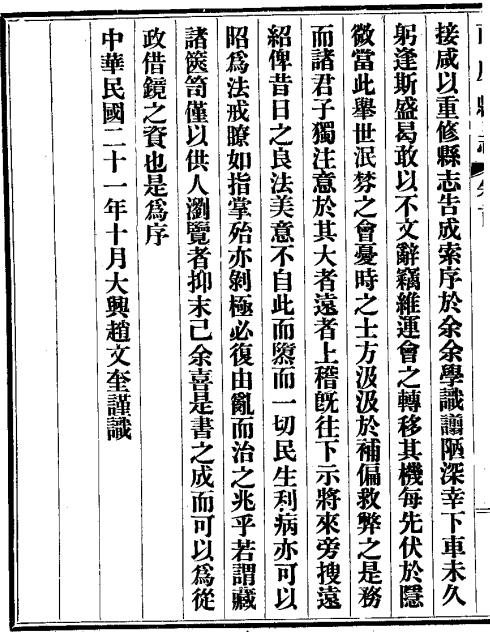 縣志 卷首
接咸以重修縣志告成索序於余余學識譾陋深幸下車未久
躬逢斯盛曷敢以不文辭竊維運會之轉移其機每先伏於隱
微當此舉世泯棼之會憂時之士方汲汲於補偏救弊之是務
而諸君子獨注意於其大者遠者上稽旣往下示將來旁搜遠
紹俾昔日之良法美意不自此而隳而一切民生利病亦可以
昭爲法戒瞭如指掌殆亦剝極必復由亂而治之兆乎若謂藏
諸篋笥僅以供人瀏覽者抑末已余喜是書之成而可以爲從
政借鏡之資也是爲序
中華民國二十一年十月大興趙文奎謹識